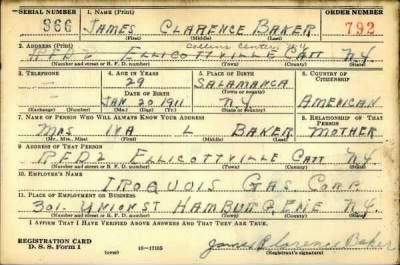 SERIAL NUMBER 1. NAME (Print) ORDER NUMBER
366 JAMES CLARENCE BAKER 792
(First) (Middle) (Last)
2. ADDRESS (Print) Collins Center, N.Y.
R.F.D.2 ELLICOTTVILLE CATT N.Y.
(Number and street or R. F. D. number) (Town) (County) (State)
3. TELEPHONE 4. AGE IN YEARS 5. PLACE OF BIRTH 6. COUNTRY OF CITIZENSHIP
29 SALAMANCA
DATE OF BIRTH (Town or county)
JAN. 20 1911 N.Y. AMERICAN
(Exchange) (Number) (Mo.) (Day) (Yr.) (State or country)
7. NAME OF PERSON WHO WILL ALWAYS KNOW YOUR ADDRESS 8. RELATIONSHIP OF THAT PERSON
MRS IVA L BAKER MOTHER
(Mr., Mrs., Miss) (First) (Middle) (Last)
9. ADDRESS OF THAT PERSON
R.F.D.2 ELLICOTTVILLE CATT N.Y.
(Number and street or R. F. D. number) (Town) (County) (State)
10. EMPLOYER'S NAME
IROQUOIS GAS CORP.
11. PLACE OF EMPLOYMENT OR BUSINESS
301- UNION ST HAMBURG, ERIE N.Y.
(Number and street or R. F. D. number) (Town) (County) (State)
I AFFIRM THAT I HAVE VERIFIED ABOVE ANSWERS AND THAT THEY ARE TRUE.
REGISTRATION CARD
D. S. S. Form 1 16-17105 James Clarence Baker
(over) (Registrant's signature)